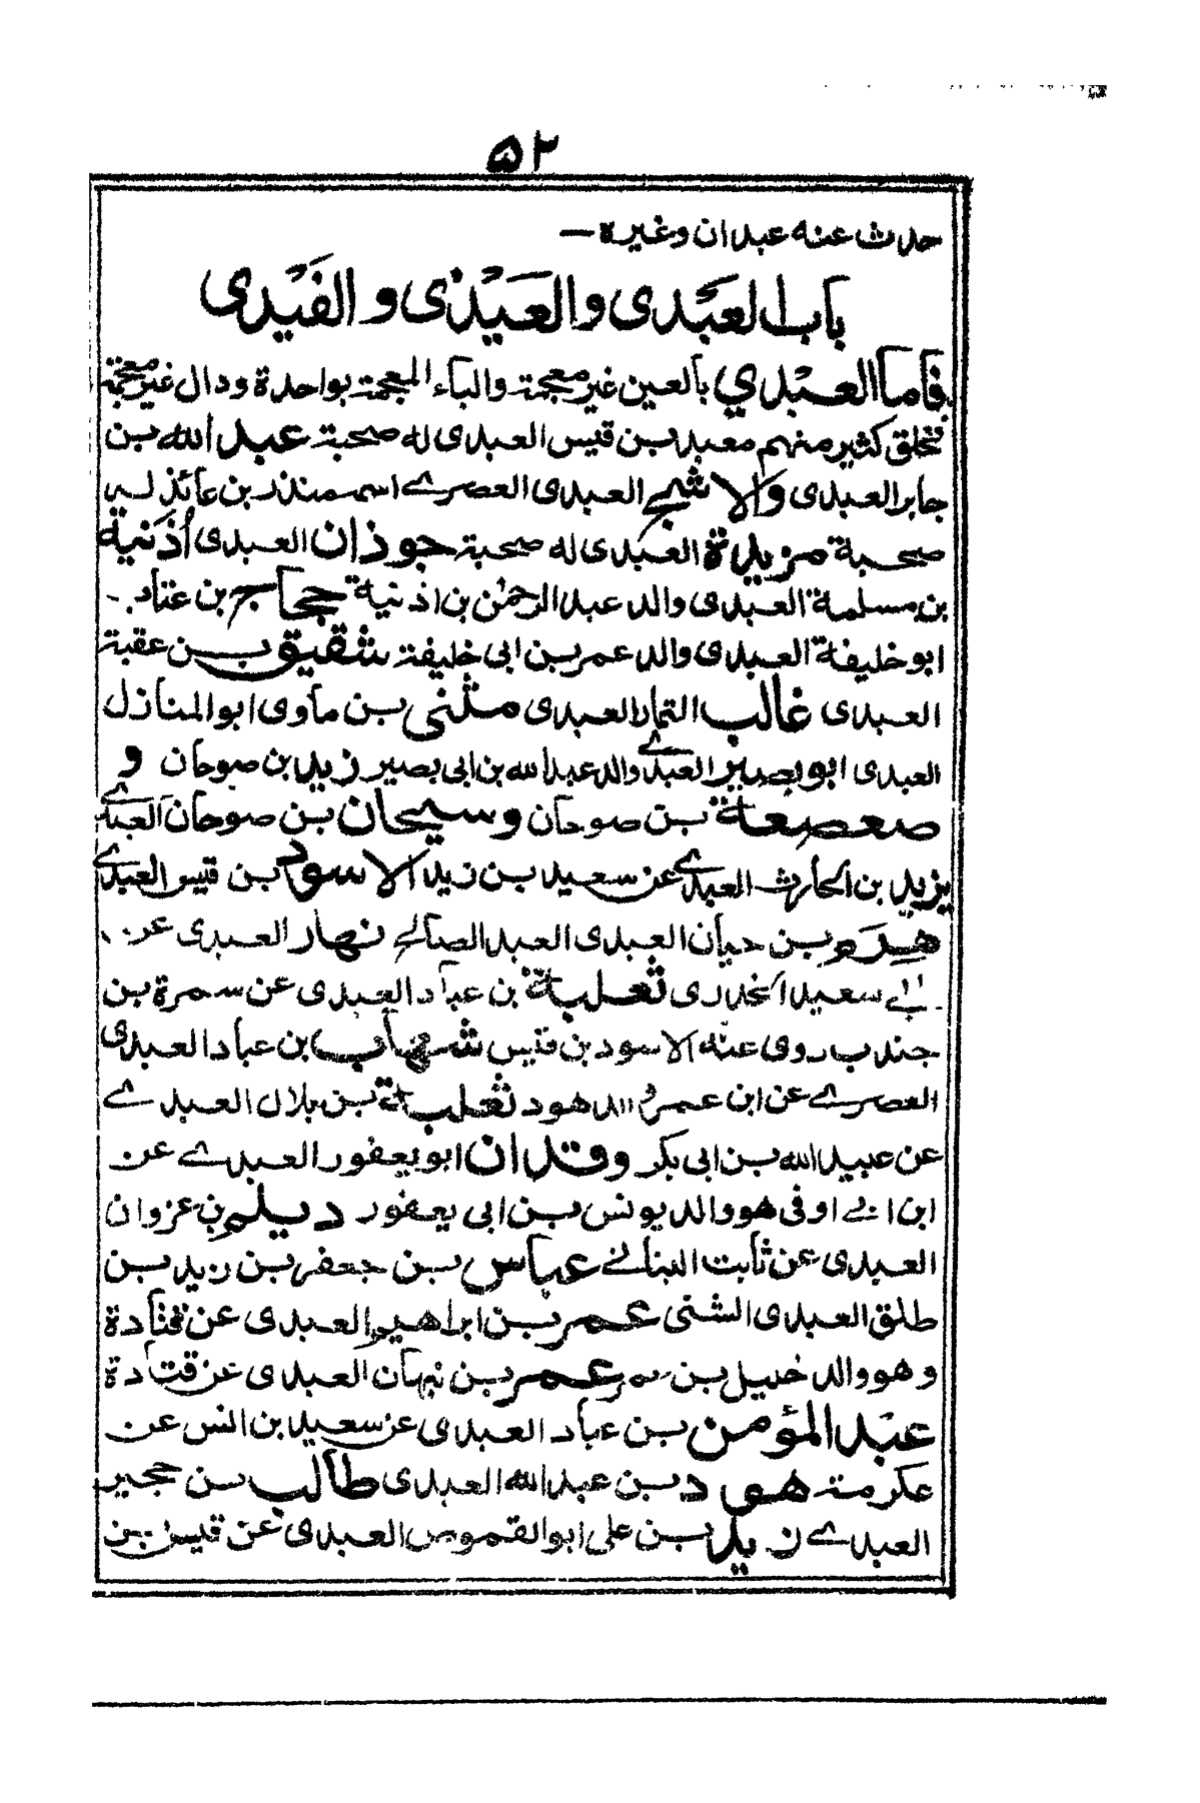 ۵۲
حدث عنه عبدان وغيرة —
باب العَبْدى والعَيْذى والفَيْدى
فاما العبْدي بالعين غير معجمة والباء المعجمة بواحدة ودال غير معجمة
فخلق كثير منهم معبد بن قيس العبدى له صحبة عبد الله بن
جابر العبدى والاشج العبدى العصرے اسمه منذر بن عائذ له
صحبة مزيدة العبدى له صحبة جوذان العبدى أذنية
بن مسلمة العبدى والد عبد الرحمٰن بن اذنية حجاج بن عتاب
ابو خليفة العبدى والد عمر بن ابى خليفة شقيق بن عقبة
العبدى غالب التمار العبدى مثنى بن ماوى ابو المنازل
العبدى ابو بصير العبدے والد عبد الله بن ابى بصير زيد بن صوحان و
صعصعة بن صوحان وسيحان بن صوحان العبدے
يزيد بن الحارث العبدے عن سعيد بن زيد الاسود بن قيس العبدے
هرم بن حيان العبدى العبد الصالح نهار العبدى عن
ابے سعيد الخدرى ثعلبة بن عباد العبدى عن سمرة بن
جندب روى عنه الاسود بن قيس شهاب بن عباد العبدى
العصرے عن ابن عمر والد هود ثعلبة بن بلال العبدے
عن عبيد الله بن ابى بكر وقدان ابو يعفور العبدے عن
ابن ابے اوفى هو والد يونس بن ابى يعفور ديلم بن غزوان
العبدى عن ثابت البنانے عباس بن جعفر بن زيد بن
طلق العبدى الشنى عمر بن ابراهيم العبدى عن قتادة
وهو والد خليل بن عمر عمر بن نبهان العبدى عن قتادة
عبد المؤمن بن عباد العبدى عن سعيد بن انس عن
عكرمة هود بن عبد الله العبدى طالب بن حجير
العبدے زيد بن على ابو القموص العبدى عن قيس بن